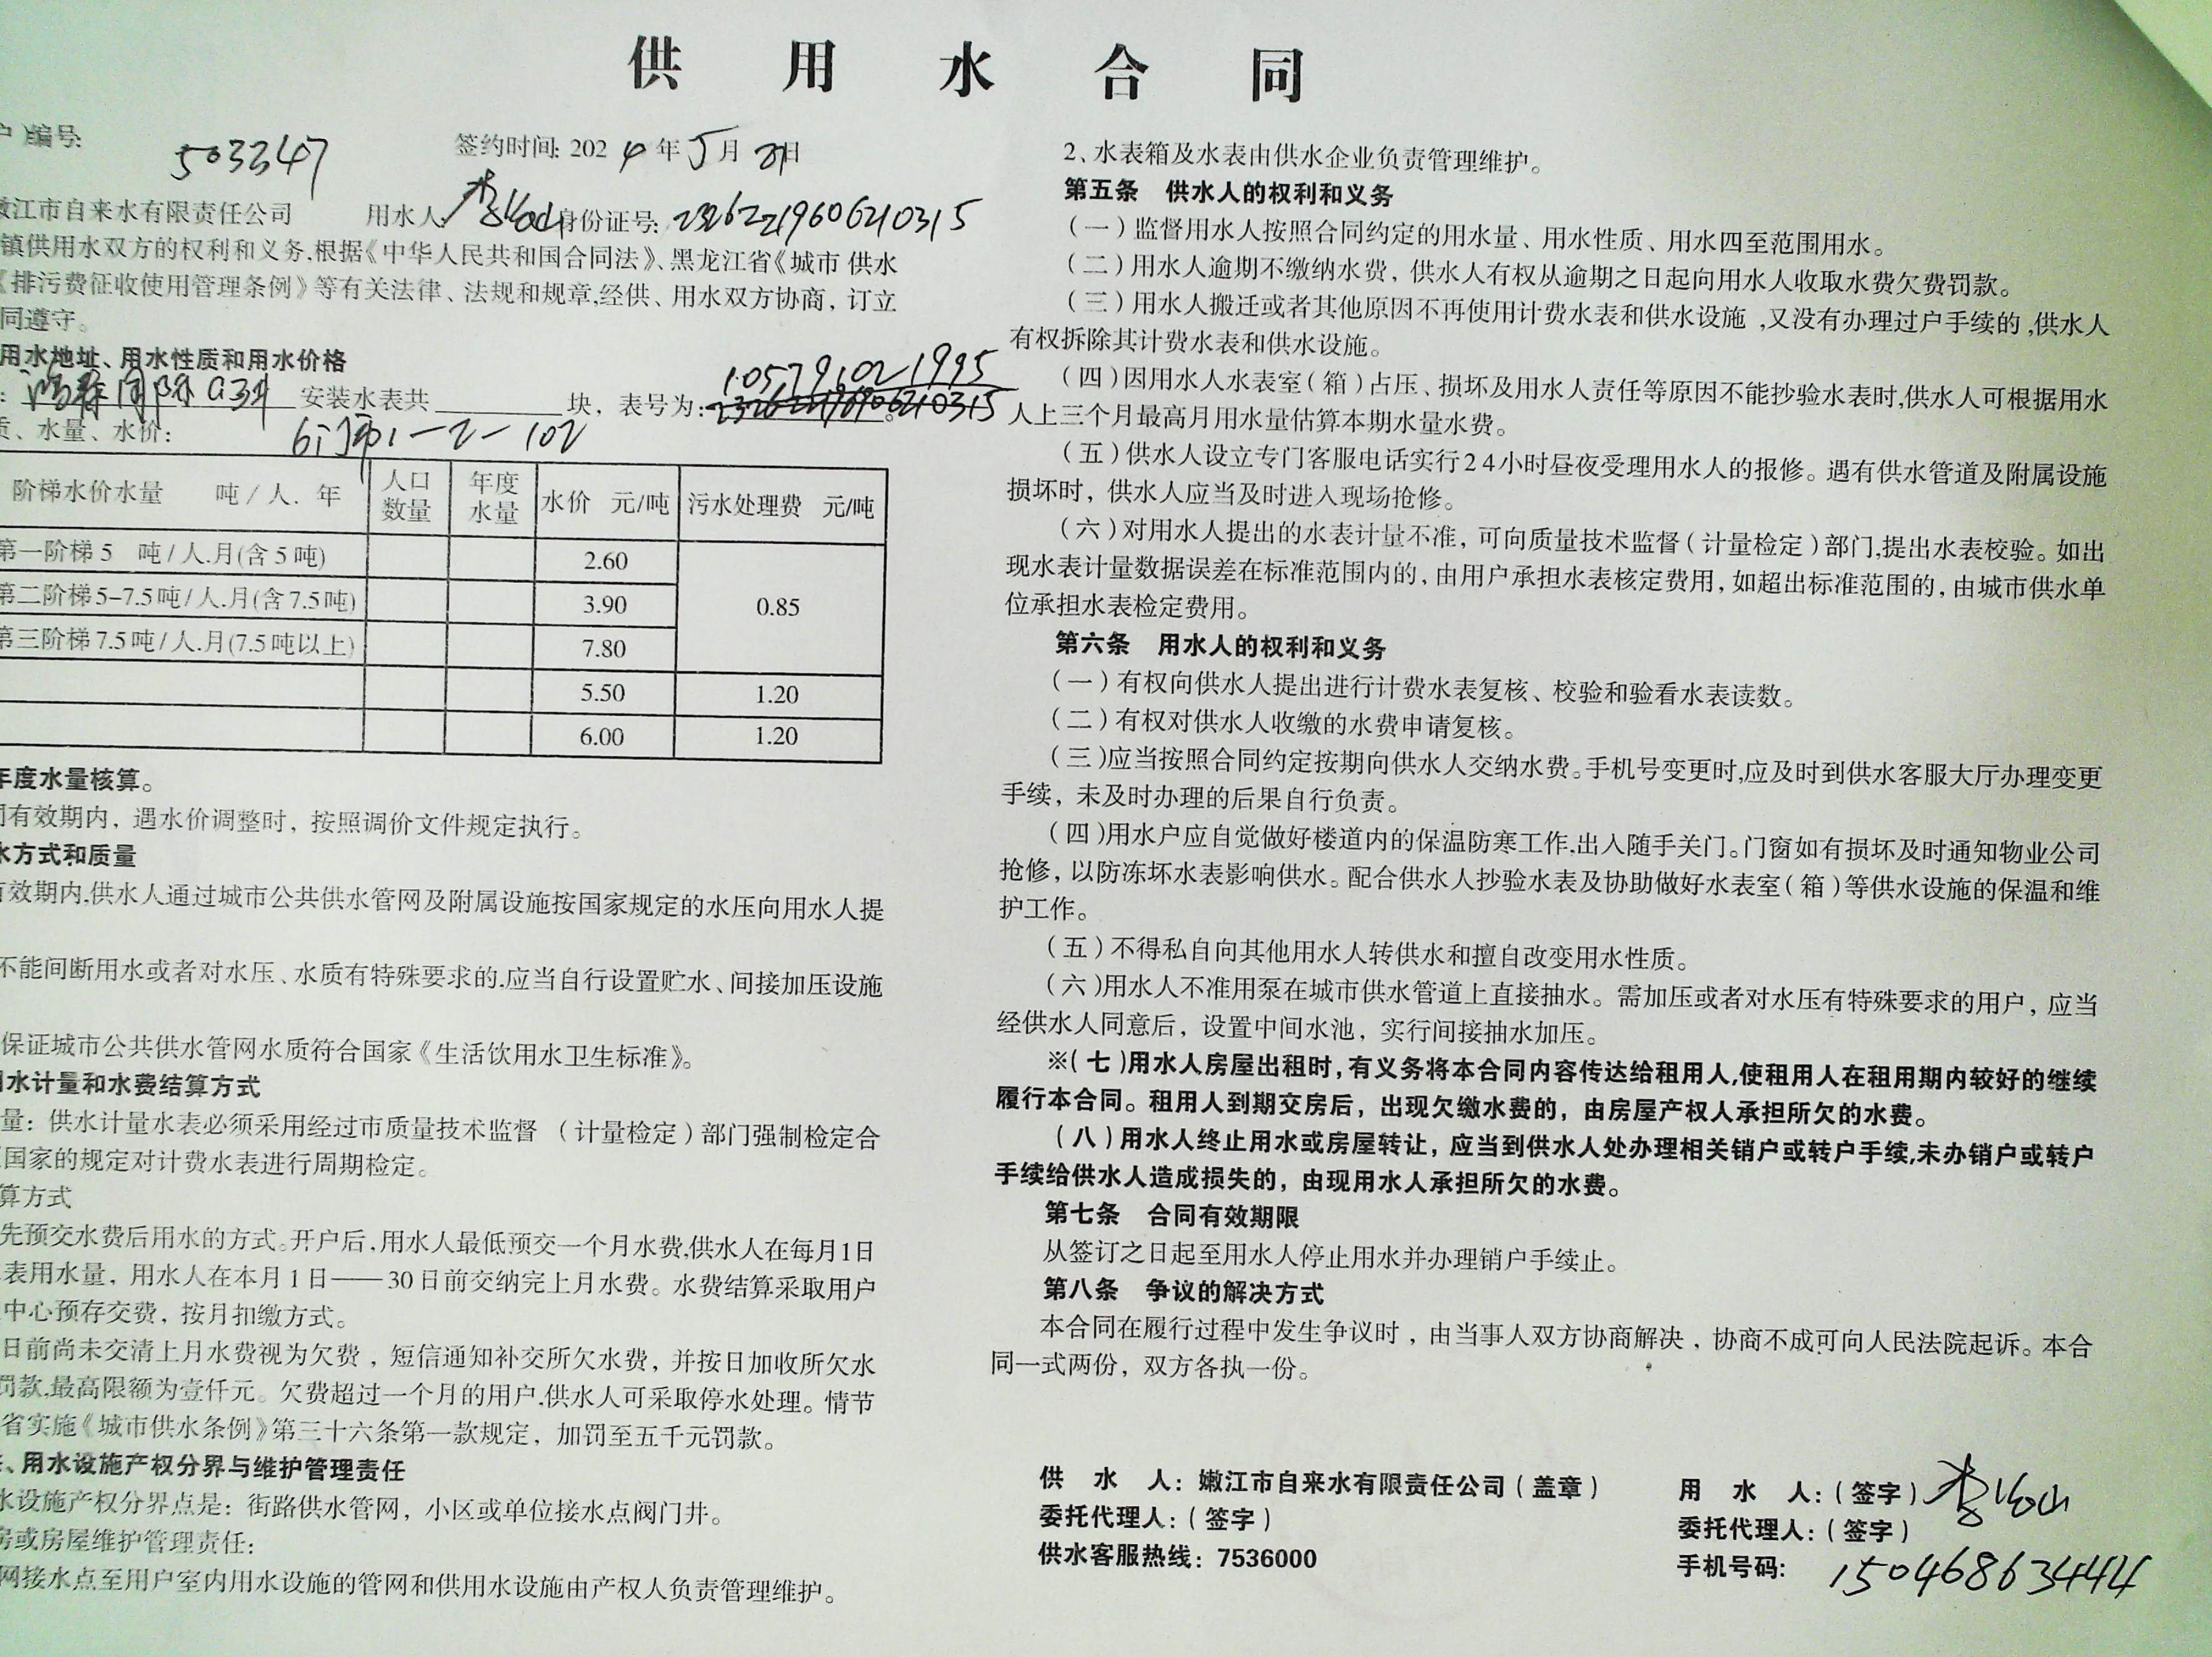 供 用 水 合 同
户)编号: 503347 签约时间: 2024年5月21日
嫩江市自来水有限责任公司 用水人: 李 身份证号: 23262219606210315
镇供用水双方的权利和义务,根据《中华人民共和国合同法》、黑龙江省《城市 供水
《排污费征收使用管理条例》等有关法律、法规和规章,经供、用水双方协商, 订立
同遵守。
用水地址、用水性质和用水价格
: 安装水表共 块, 表号为: 10579602 1995
质、水量、水价: 6门市1-2-102
阶梯水价水量 吨/人. 年 人口数量 年度水量 水价 元/吨 污水处理费 元/吨
第一阶梯5 吨/人.月(含5吨) 2.60 0.85
第二阶梯5-7.5吨/人.月(含7.5吨) 3.90
第三阶梯7.5吨/人.月(7.5吨以上) 7.80
5.50 1.20
6.00 1.20
年度水量核算。
同有效期内, 遇水价调整时, 按照调价文件规定执行。
水方式和质量
有效期内,供水人通过城市公共供水管网及附属设施按国家规定的水压向用水人提
不能间断用水或者对水压、水质有特殊要求的,应当自行设置贮水、间接加压设施
保证城市公共供水管网水质符合国家《生活饮用水卫生标准》。
用水计量和水费结算方式
量: 供水计量水表必须采用经过市质量技术监督 (计量检定)部门强制检定合
国家的规定对计费水表进行周期检定。
算方式
先预交水费后用水的方式。开户后,用水人最低预交一个月水费,供水人在每月1日
表用水量, 用水人在本月1日——30日前交纳完上月水费。水费结算采取用户
中心预存交费, 按月扣缴方式。
日前尚未交清上月水费视为欠费, 短信通知补交所欠水费, 并按日加收所欠水
罚款,最高限额为壹仟元。欠费超过一个月的用户,供水人可采取停水处理。情节
省实施《城市供水条例》第三十六条第一款规定, 加罚至五千元罚款。
、用水设施产权分界与维护管理责任
水设施产权分界点是: 街路供水管网, 小区或单位接水点阀门井。
房或房屋维护管理责任:
网接水点至用户室内用水设施的管网和供用水设施由产权人负责管理维护。
2、水表箱及水表由供水企业负责管理维护。
第五条 供水人的权利和义务
(一)监督用水人按照合同约定的用水量、用水性质、用水四至范围用水。
(二)用水人逾期不缴纳水费, 供水人有权从逾期之日起向用水人收取水费欠费罚款。
(三)用水人搬迁或者其他原因不再使用计费水表和供水设施,又没有办理过户手续的,供水人
有权拆除其计费水表和供水设施。
(四)因用水人水表室(箱)占压、损坏及用水人责任等原因不能抄验水表时,供水人可根据用水
人上三个月最高月用水量估算本期水量水费。
(五)供水人设立专门客服电话实行24小时昼夜受理用水人的报修。遇有供水管道及附属设施
损坏时, 供水人应当及时进入现场抢修。
(六)对用水人提出的水表计量不准, 可向质量技术监督(计量检定)部门,提出水表校验。如出
现水表计量数据误差在标准范围内的, 由用户承担水表核定费用, 如超出标准范围的, 由城市供水单
位承担水表检定费用。
第六条 用水人的权利和义务
(一)有权向供水人提出进行计费水表复核、校验和验看水表读数。
(二)有权对供水人收缴的水费申请复核。
(三)应当按照合同约定按期向供水人交纳水费。手机号变更时,应及时到供水客服大厅办理变更
手续, 未及时办理的后果自行负责。
(四)用水户应自觉做好楼道内的保温防寒工作,出入随手关门。门窗如有损坏及时通知物业公司
抢修, 以防冻坏水表影响供水。配合供水人抄验水表及协助做好水表室(箱)等供水设施的保温和维
护工作。
(五)不得私自向其他用水人转供水和擅自改变用水性质。
(六)用水人不准用泵在城市供水管道上直接抽水。需加压或者对水压有特殊要求的用户, 应当
经供水人同意后, 设置中间水池, 实行间接抽水加压。
※(七)用水人房屋出租时, 有义务将本合同内容传达给租用人,使租用人在租用期内较好的继续
履行本合同。租用人到期交房后, 出现欠缴水费的, 由房屋产权人承担所欠的水费。
(八)用水人终止用水或房屋转让, 应当到供水人处办理相关销户或转户手续,未办销户或转户
手续给供水人造成损失的, 由现用水人承担所欠的水费。
第七条 合同有效期限
从签订之日起至用水人停止用水并办理销户手续止。
第八条 争议的解决方式
本合同在履行过程中发生争议时, 由当事人双方协商解决, 协商不成可向人民法院起诉。本合
同一式两份, 双方各执一份。
供 水 人: 嫩江市自来水有限责任公司(盖章)
委托代理人:(签字)
供水客服热线: 7536000
用 水 人:(签字) 李
委托代理人:(签字)
手机号码: 15046863444